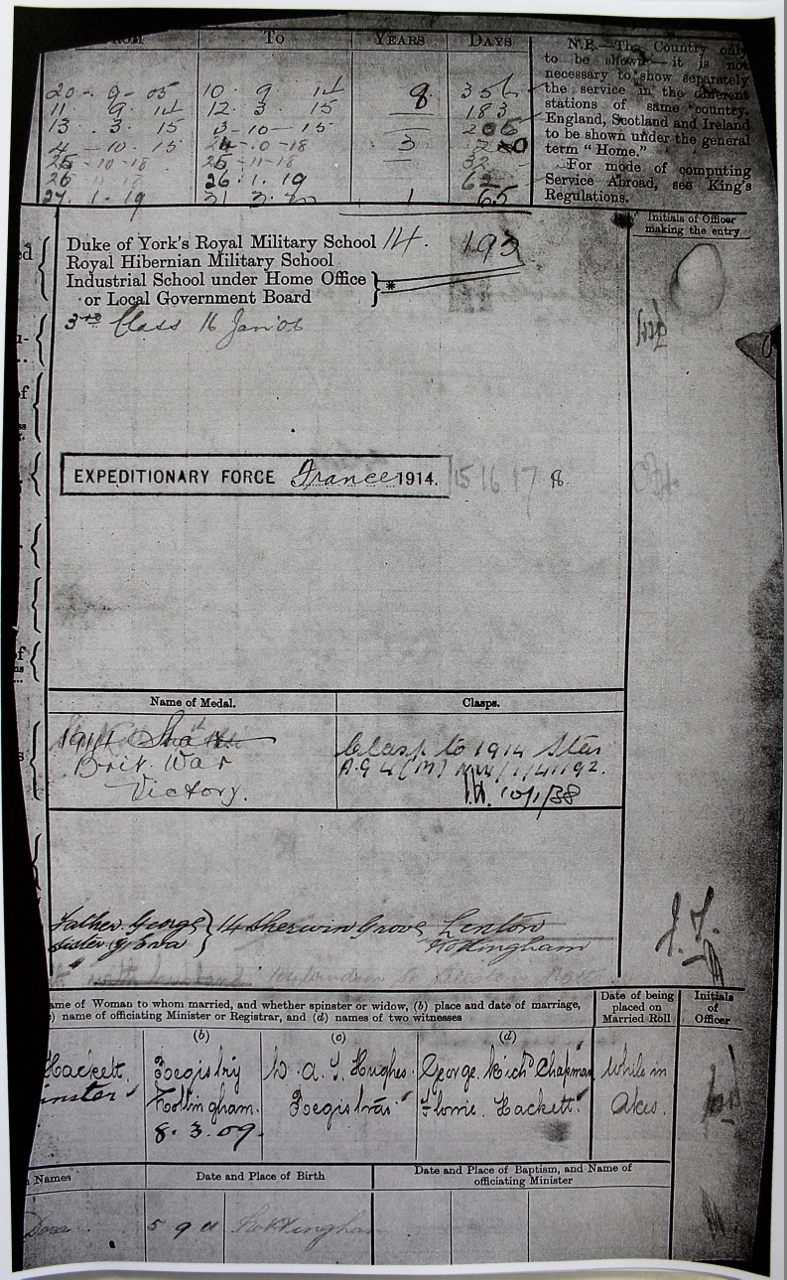 To YEARS DAYS
N.B.—The Country only
to be shown—it is not
necessary to show separately
the service in the different
stations of same country.
England, Scotland and Ireland
to be shown under the general
term "Home."
For mode of computing
Service Abroad, see King's
Regulations.
20 - 9 - 05 10 . 9 . 14 8 356
11 . 9 . 14 12 . 3 . 15 183
13 . 3 . 15 3 - 10 - 15
4 - 10 . 15 3
25 - 10 - 18 25 - 11 - 18 32
26 26 . 1 . 19 62
27 . 1 . 19 1 65
Initials of Officer
making the entry
Duke of York's Royal Military School 14. 193
Royal Hibernian Military School
Industrial School under Home Office
or Local Government Board } *
3rd Class 16 Jan 06
EXPEDITIONARY FORCE France 1914. 15 16 17 8.
Name of Medal. Clasps.
1914 Star Clasp to 1914 Star
Brit. War
Victory. 10/1/38
Father George } 14 Sherwin Grove, Lenton
Sister Nottingham
ame of Woman to whom married, and whether spinster or widow, (b) place and date of marriage,
) name of officiating Minister or Registrar, and (d) names of two witnesses
Date of being
placed on
Married Roll
Initials
of
Officer
(b) (c) (d)
Hackett Registry Hughes. George. Richd Chapman while in
inster Nottingham. Registrar Florrie. Hackett.
8. 3. 09.
Names Date and Place of Birth Date and Place of Baptism, and Name of
officiating Minister
5 9 11 Nottingham